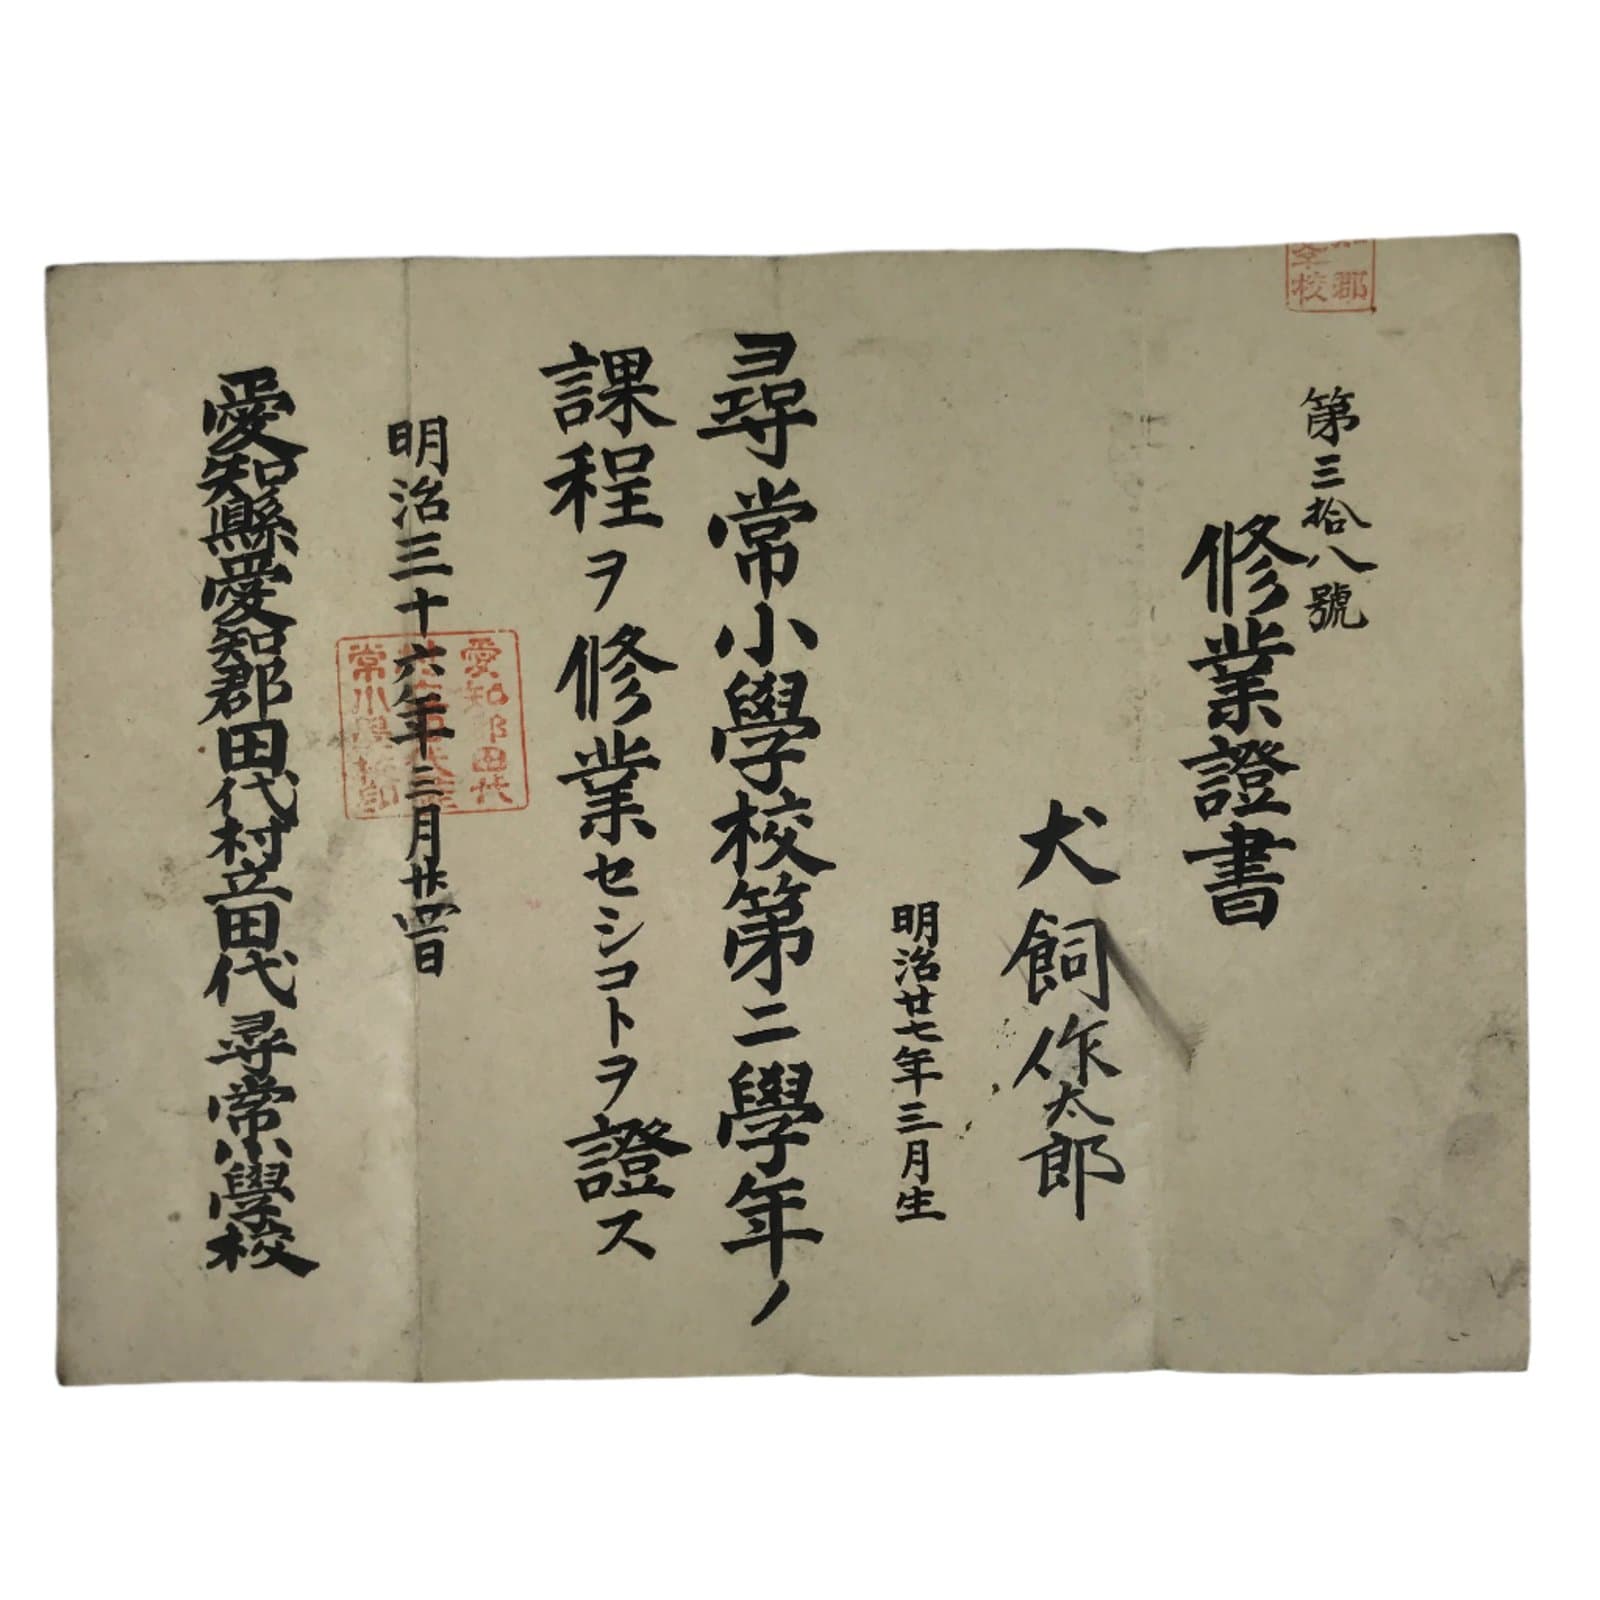 第三拾八號
修業證書
犬飼作太郎
明治廿七年三月生
尋常小學校第二學年ノ
課程ヲ修業セシコトヲ證ス
明治三十六年三月廿四日
愛知縣愛知郡田代村立田代尋常小學校
郡
校
愛知郡田代
常小學校印